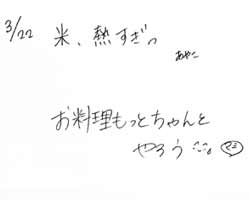 3/22 米、熱すぎっ
あやこ
お料理もっとちゃんと
やろう